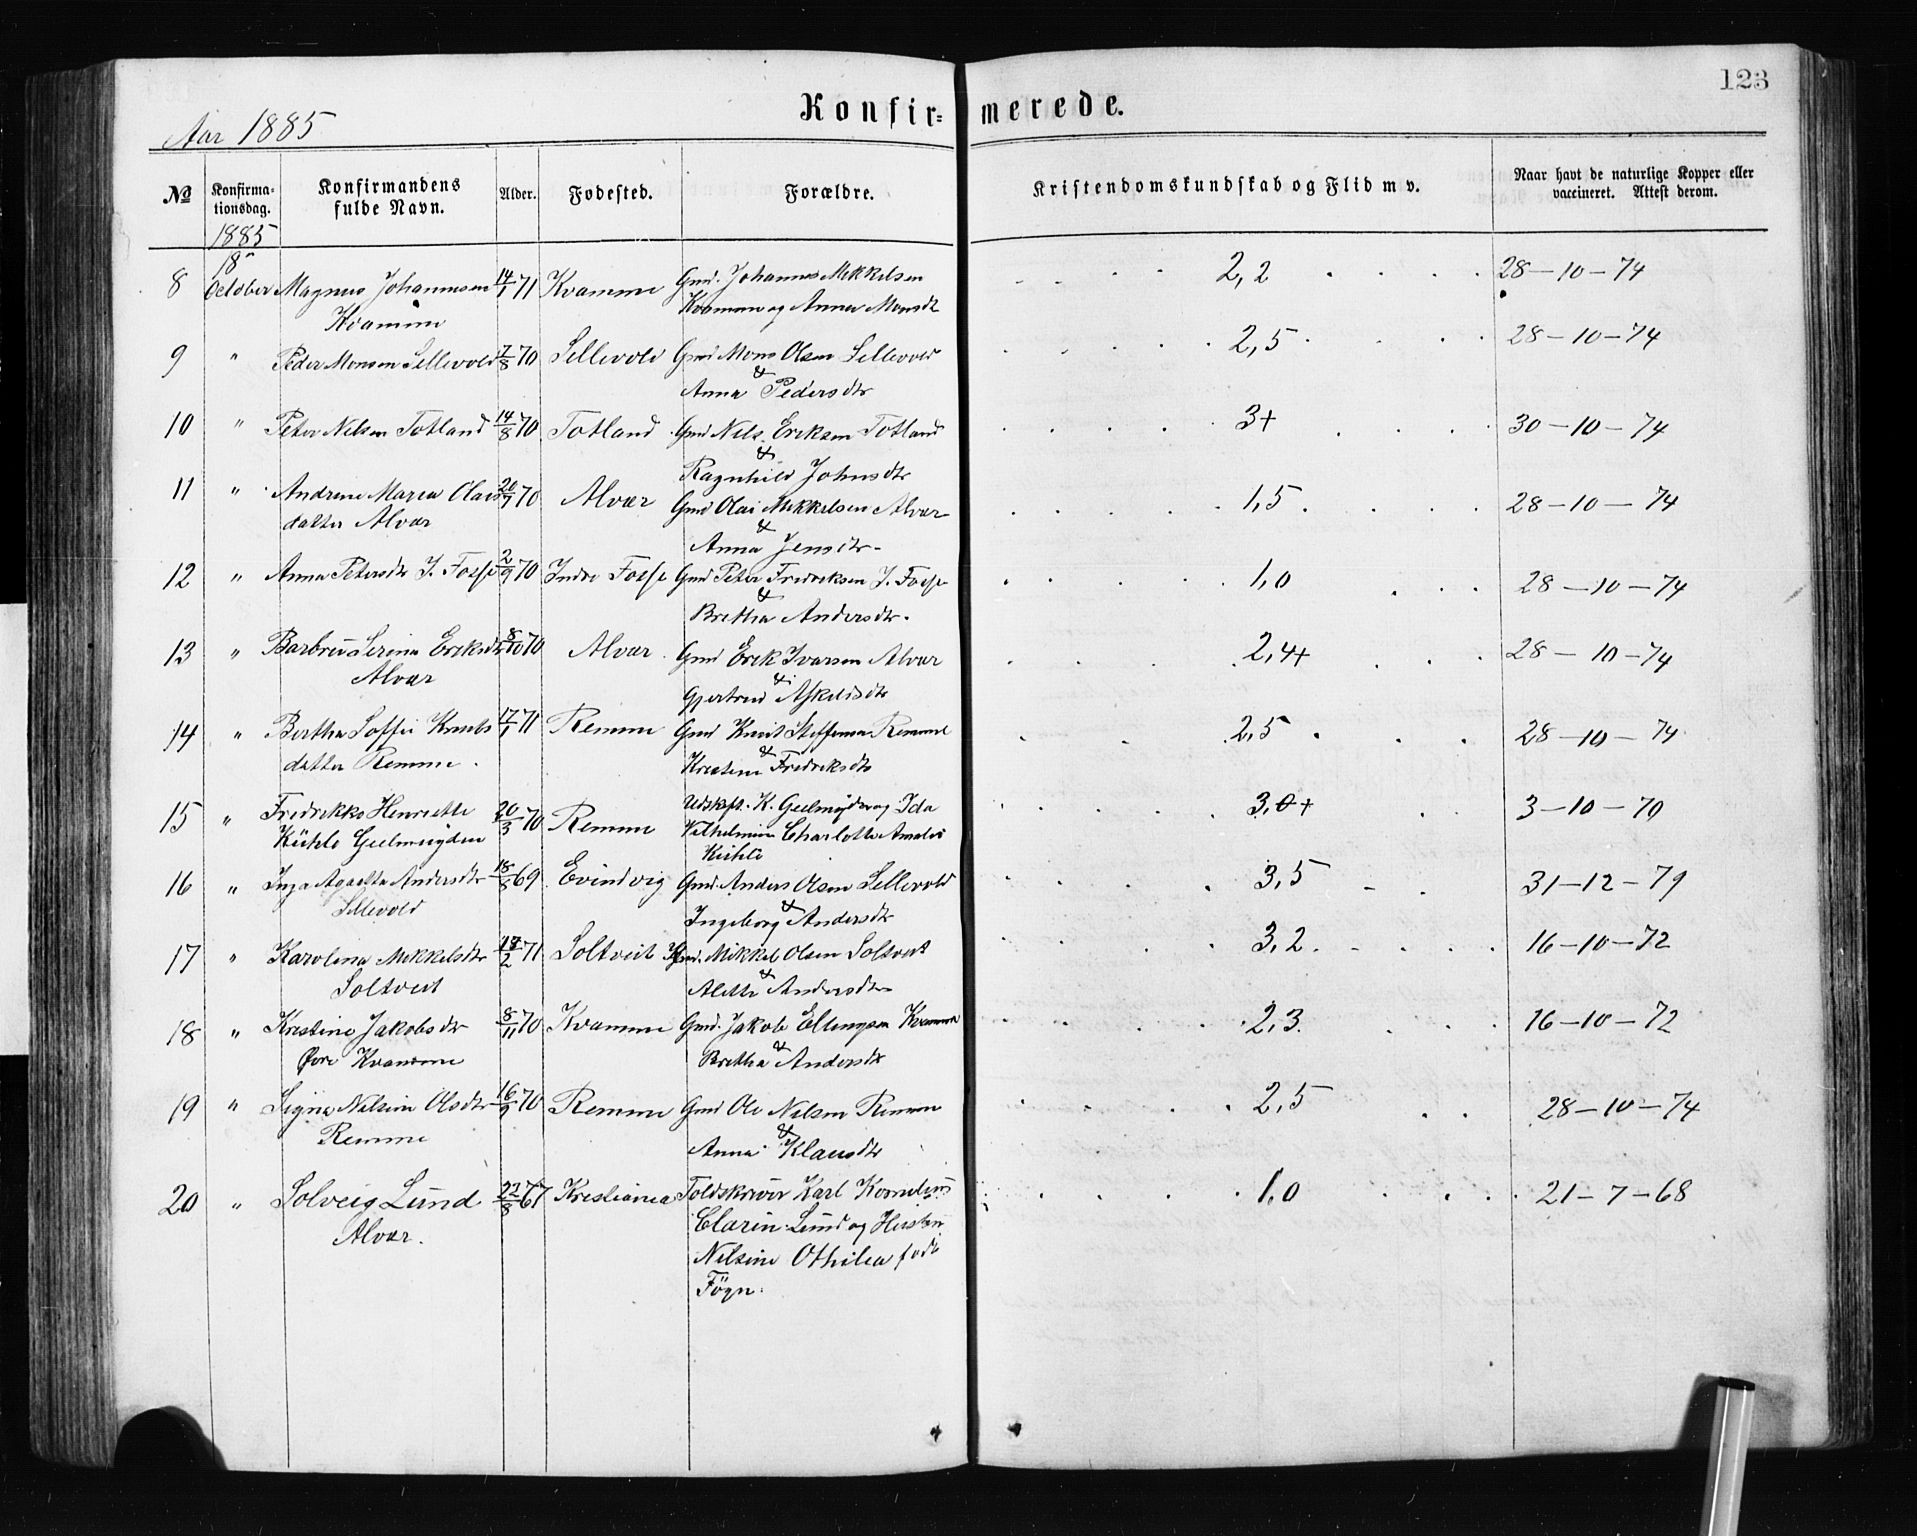 123
Aar 1885
Konfir=merede.
№ Konfirma-tionsdag. Konfirmandens fulde Navn. Alder. Fødested. Forældre. Kristendomskundskab og Flid m v. Naar havt de naturlige Kopper eller vaccineret. Attest derom.
1885
18
8 October Magnus Johannesen 14/1 71 Kvamme Gmd. Johannes Mikkelsen 2,2 28-10-74
Kvamme Kvamme og Anna Monsdtr
9 " Peder Monsen Sellevold 7/8 70 Sellevold Gmd Mons Olsen Sellevold 2,5 28-10-74
& Anna Pedersdtr
10 " Peter Nilsen Totland 14/8 70 Totland Gmd Nils Eriksen Totland 3+ 30-10-74
& Ragnhild Johnsdtr
11 " Andrine Maria Olais 20/7 70 Alvær Gmd Olai Mikkelsen Alvær 1,5 28-10-74
datter Alvær & Anna Jensdtr
12 " Anna Petersdtr I. Fosse 2/9 70 Indre Fosse Gmd Peter Fredriksen I. Fosse 1,0 28-10-74
& Bretha Andersdtr.
13 " Barbru Serina Eriksdtr 8/10 70 Alvær Gmd Erik Ivarsen Alvær 2,4+ 28-10-74
Alvær Gjertrud & Askildsdtr
14 " Bertha Soffie Knuds 17/1 71 Remme Gmd Knut Steffensen Remme 2,5 28-10-74
datter Remme. Kristine & Fredriksdtr
15 " Fredrikke Henriette 20/3 70 Remme Udskft. K. Geelmuyden og Ida 3,0+ 3-10-70
Kühle Geelmuyden Vilhelmine Charlotte Amalie
Kühle
16 " Inga Agathe Andersdtr 18/8 69 Evindvig Gmd. Anders Olsen Sellevold 3,5 31-12-79
Sellevold Ingeborg & Andersdtr
17 " Karolina Mikkelsdtr /2 71 Soltveit Gmd. Mikkel Olsen Soltveit 3,2 16-10-72
Soltveit Alette & Andersdtr
18 " Kristine Jakobsdtr 8/11 70 Kvamme Gmd. Jakob Ellingsen Kvamme 2,3 16-10-72
Øvre Kvamme Bretha & Andersdtr
19 " Signe Nilsine Olsdtr 16/9 70 Remme Gmd Ole Nilsen Remme 2,5 28-10-74
Remme Anna & Klausdtr
20 " Solveig Lund 22/8 67 Kristiania Toldskriver Karl Kornelius 1,0 21-7-68
Alvær. Clarin Lund og
Nilsine Othilia født
Fögn.